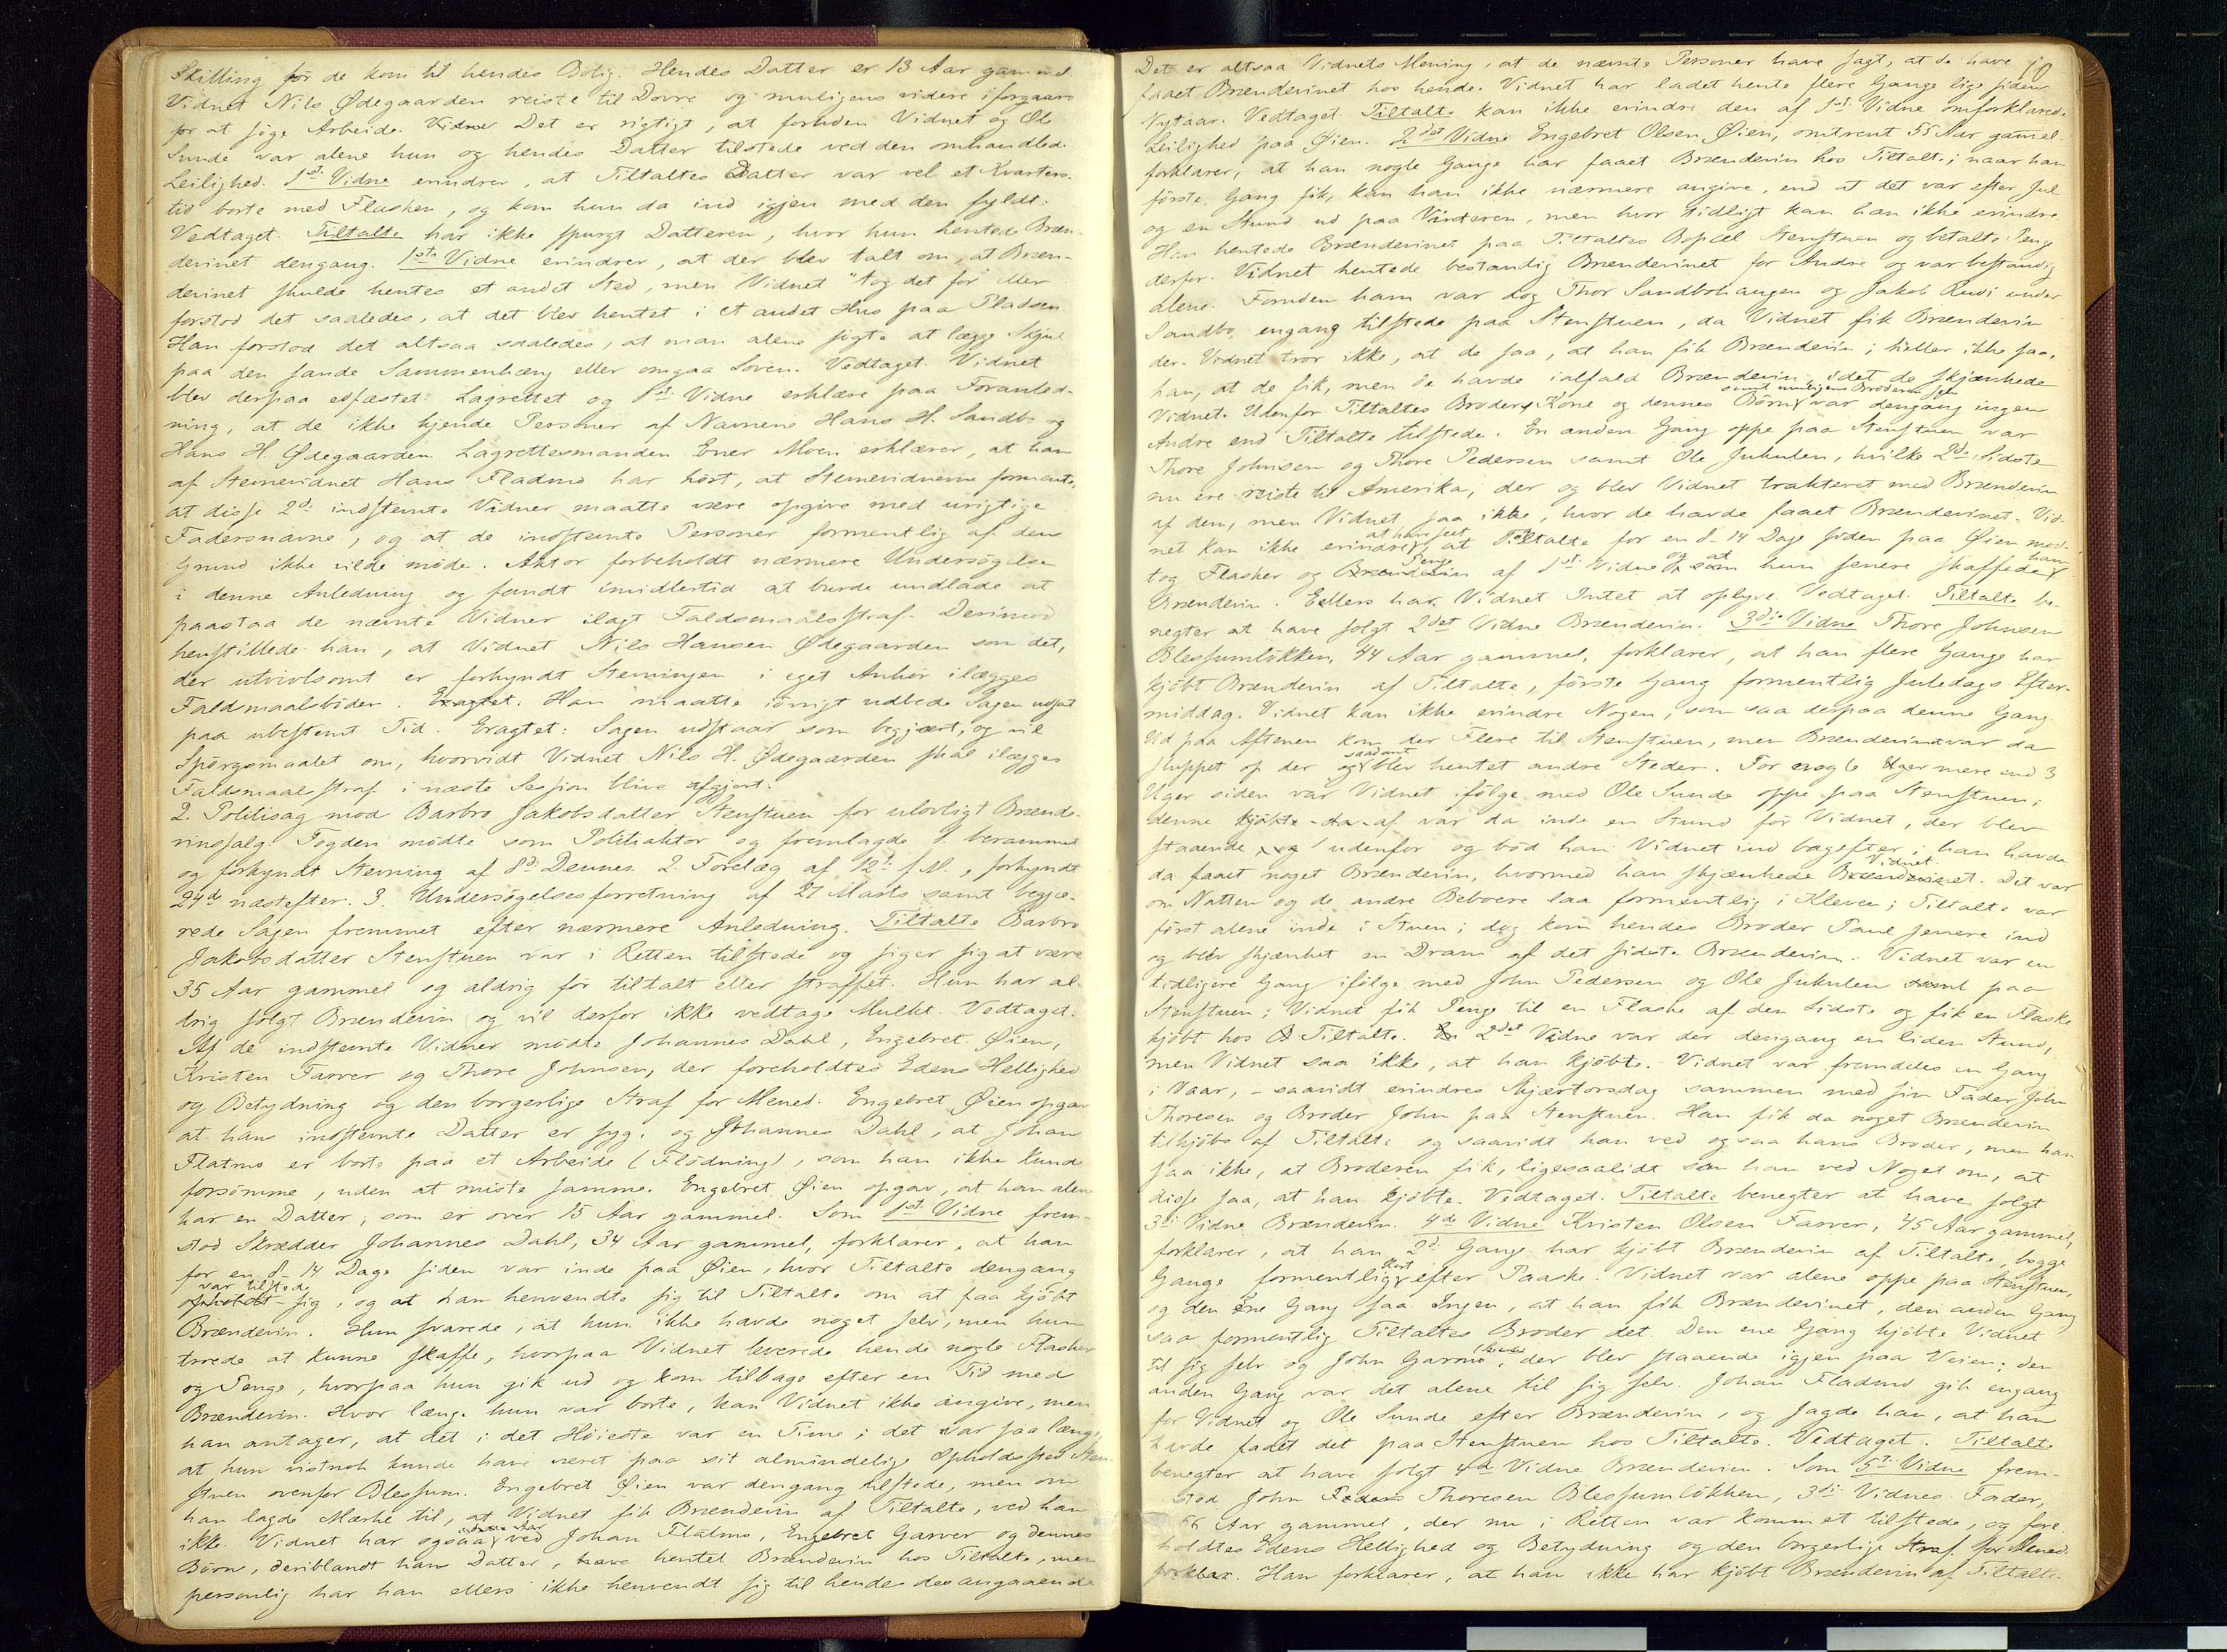 Skilling før de kom til hendes Bolig. Hendes Datter er 13 Aar gammel.
Vidnet Nils Ødegaarden reiste til Dovre og muligens videre iforgaars
for at søge Arbeide. Vidne Det er rigtigt, at foruden Vidnet og Ole
Sunde var alene hun og hendes Datter tilstede ved den omhandlede
Leilighed. 1ste Vidne erindrer, at Tiltaltes Datter var vel et Kvarters-
tid borte med Flasken, og kom hun da ind igjen med den fyldt.
Vedtaget. Tiltalte har ikke spurgt Datteren, hvor hun hentede Bræn-
devinet dengang. 1ste Vidne erindrer, at der blev talt om, at Bræn-
devinet skulde hentes et andet Sted, men Vidnet "tog det for" eller
forstod det saaledes, at det blev hentet i et andet Hus paa Pladsen.
Han forstod det altsaa saaledes, at man alene søgte at lægge Skjul
paa den sande Sammenhæng eller omgaa Loven. Vedtaget. Vidnet
blev derpaa edfæstet. Lagrettet og 1ste Vidne erklære paa Foranled-
ning, at de ikke kjende Personer af Navnene Hans H. Sandbo og
Hans H. Ødegaarden. Lagrettesmanden Ener Moen erklærer, at han
af Stevnevidnet Hans Fladmo har hørt, at Stevnevidnerne formente,
at disse 2de indstevnte Vidner maatte være opgivne med urigtige
Fadersnavne, og at de indstevnte Personer formentlig af den
Grund ikke vilde møde. Aktor forbeholdt nærmere Undersøgelse
i denne Anledning og fandt imidlertid at burde undlade at
paastaa de nævnte Vidner ilagt Faldsmaalsstraf. Derimod
henstillede han, at Vidnet Nils Hansen Ødegaarden som det,
der utvivlsomt er forkyndt Stevningen i eget Anhør ilægges
Faldmaalsbøder. Eragtet: Han maatte iøvrigt udbede Sagen udsat
paa ubestemt Tid. Eragtet: Sagen udstaar som begjært, og vil
Spørgsmaalet om, hvorvidt Vidnet Nils H. Ødegaarden skal ilægges
Faldsmaalsstraf i næste Session blive afgjort.
2. Politisag mod Barbro Jakobsdatter Stenstuen for ulovligt Brænde-
vinssalg. Fogden mødte som Politiaktor og fremlagde 1. berammet
og forkyndt Stevning af 8de Dennes. 2. Forelæg af 12te f. M., forkyndt
24de næstefter. 3. Undersøgelsesforretning af 27 Marts samt begjæ-
rede Sagen fremmet efter nærmere Anledning. Tiltalte Barbro
Jakobsdatter Stenstuen var i Retten tilstede og siger sig at være
35 Aar gammel og aldrig før tiltalt eller straffet. Hun har al-
drig solgt Brændevin og vil derfor ikke vedtage Mulkt. Vedtaget.
Af de indstevnte Vidner mødte Johannes Dahl, Engebret Øien,
Kristen Farver og Thore Johnsen, der foreholdtes Edens Hellighed
og Betydning og den borgerlige Straf for Mened. Engebret Øien opgav
at hans indstevnte Datter er syg, og Johannes Dahl, at Johan
Flatmo er borte paa et Arbeide (Flødning), som han ikke kunde
forsømme, uden at miste samme. Engebret Øien opgav, at han alene
har en Datter, som er over 15 Aar gammel. Som 1ste Vidne frem-
stod Skrædder Johannes Dahl, 34 Aar gammel, forklarer, at han
for en 8-14 Dage siden var inde paa Øien, hvor Tiltalte dengang
var tilstede
opholdt sig, og at han henvendte sig til Tiltalte om at faa kjøbt
Brændevin. Hun svarede, at hun ikke havde noget selv, men hun
troede at kunne skaffe, hvorpaa Vidnet leverede hende nogle Flasker
og Penge, hvorpaa hun gik ud og kom tilbage efter en Tid med
Brændevin. Hvor længe hun var borte, kan Vidnet ikke angive, men
han antager, at det i det Høieste var en Time; det var saa længe,
at hun vistnok kunde have været paa sit almindelige Opholdssted Sten-
stuen ovenfor Blessum. Engebret Øien var dengang tilstede, men om
han lagde Mærke til, at Vidnet fik Brændevin af Tiltalte, ved han
ikke. Vidnet har ogsaa ved Johan Flatmo, Engebret Garver og dennes
Børn, deriblandt han Datter, have hentet Brændevin hos Tiltalte, men
personlig har han ellers ikke henvendt sig til hende desangaaende
10
Det er altsaa Vidnets Mening, at de nævnte Personer have sagt, at de have
faaet Brændevinet hos hende. Vidnet har ladet hente flere Gange lige siden
Nytaar. Vedtaget. Tiltalte kan ikke erindre den af 1ste Vidne omforklarede
Leilighed paa Øien. 2det Vidne Engebret Olsen Øien, omtrent 55 Aar gammel
forklarer, at han nogle Gange har faaet Brændevin hos Tiltalte; naar han
første Gang fik, kan han ikke nærmere angive, end at det var efter Jul
og en Stund ud paa Vinteren, men hvor tidligt kan han ikke erindre
Han hentede Brændevinet paa Tiltaltes Bopæl Stenstuen og betalte Penge
derfor. Vidnet hentede bestandig Brændevinet for Andre og var bestandig
alene. Foruden ham var dog Thor Sandbohaugen og Jakob Rudi under
Sandbo engang tilstede paa Stenstuen, da Vidnet fik Brændevin
der. Vidnet tror ikke, at de saa, at han fik Brændevin; heller ikke saa
han, at de fik, men de havde ialfald Brændevin, idet de skjænkede
samt muligens Broderen selv
Vidnet. Udenfor Tiltaltes Broders Kone og dennes Børn var dengang ingen
Andre end Tiltalte tilstede. En anden Gang oppe paa Stenstuen var
Thore Johnsen og Thore Pedersen samt Ole Jukulen, hvilke 2de Sidste
nu ere reiste til Amerika, der og blev Vidnet trakteret med Brændevin
af dem, men Vidnet saa ikke, hvor de havde faaet Brændevinet. Vid-
at have seet
net kan ikke erindre, at Tiltalte for en 8-14 Dage siden paa Øien mod-
Penge og at ham
tog Flasker og Brændevin af 1ste Vidne og som hun senere skaffede
Brændevin. Ellers har Vidnet Intet at oplyse. Vedtaget. Tiltalte be-
negter at have solgt 2det Vidne Brændevin. 3die Vidne Thore Johnsen
Blessumløkken, 44 Aar gammel, forklarer, at han flere Gange har
kjøbt Brændevin af Tiltalte, første Gang formentlig Juledags Efter-
middag. Vidnet kan ikke erindre Nogen, som saa derpaa denne Gang.
Ud paa Aftenen kom der Flere til Stenstuen, men Brændevinet var da
saadant
sluppet op der og blev hentet andre Steder. For nogle Uger mere end 3
Uger siden var Vidnet følge med Ole Sunde oppe paa Stenstuen;
denne kjøbte da af var da inde en Stund før Vidnet, der blev
staaende udenfor og bød han Vidnet ind bagefter; han havde
Vidnet
da faaet noget Brændevin, hvormed han skjænkede Brændevinet. Det var
om Natten og de andre Beboere laa formentlig i Kleven; Tiltalte var
først alene inde i Stuen; dog kom hendes Broder Paul senere ind
og blev skjænket en Dram af det sidste Brændevin. Vidnet var en
tidligere Gang ifølge med John Pedersen og Ole Jukulen samt paa
Stenstuen; Vidnet fik Penge til en Flaske af den Sidste og fik en Flaske
kjøbt hos Tiltalte. 2det Vidne var der dengang en liden Stund,
men Vidnet saa ikke, at han kjøbte. Vidnet var fremdeles en Gang
i Vaar, - saavidt erindres Skjærtorsdag sammen med sin Fader John
Thoresen og Broder John paa Stenstuen. Han fik da noget Brændevin
tilkjøbs af Tiltalte og saavidt han ved ogsaa hans Broder, men han
saa ikke, at Broderen fik, ligesaalidt som han ved Noget om, at
disse saa, at han kjøbte. Vedtaget. Tiltalte benegter at have solgt
3die Vidne Brændevin. 4de Vidne Kristen Olsen Farver, 45 Aar gammel,
forklarer, at han 2de Gang har kjøbt Brændevin af Tiltalte, begge
kort
Gange formentlig efter Paaske. Vidnet var alene oppe paa Stenstuen,
og den ene Gang saa Ingen, at han fik Brændevinet, den anden Gang
saa formentlig Tiltaltes Broder det. Den ene Gang kjøbte Vidnet
til sig selv og John Garmo, der blev staaende igjen paa Veien; den
anden Gang var det alene til sig selv. Johan Fladmo gik engang
for Vidnet og Ole Sunde efter Brændevin, og sagde han, at han
havde faaet det paa Stenstuen hos Tiltalte. Vedtaget. Tiltalte
benegter at have solgt 4de Vidne Brændevin. Som 5te Vidne frem-
stod John Thoresen Blessumløkken, 3die Vidnes Fader,
Aar gammel, der nu i Retten var kommet tilstede, og fore-
holdtes Edens Hellighed og Betydning og den borgerlige Straf for Mened.
forklar. Han forklarer, at han ikke har kjøbt Brændevin af Tiltalte.